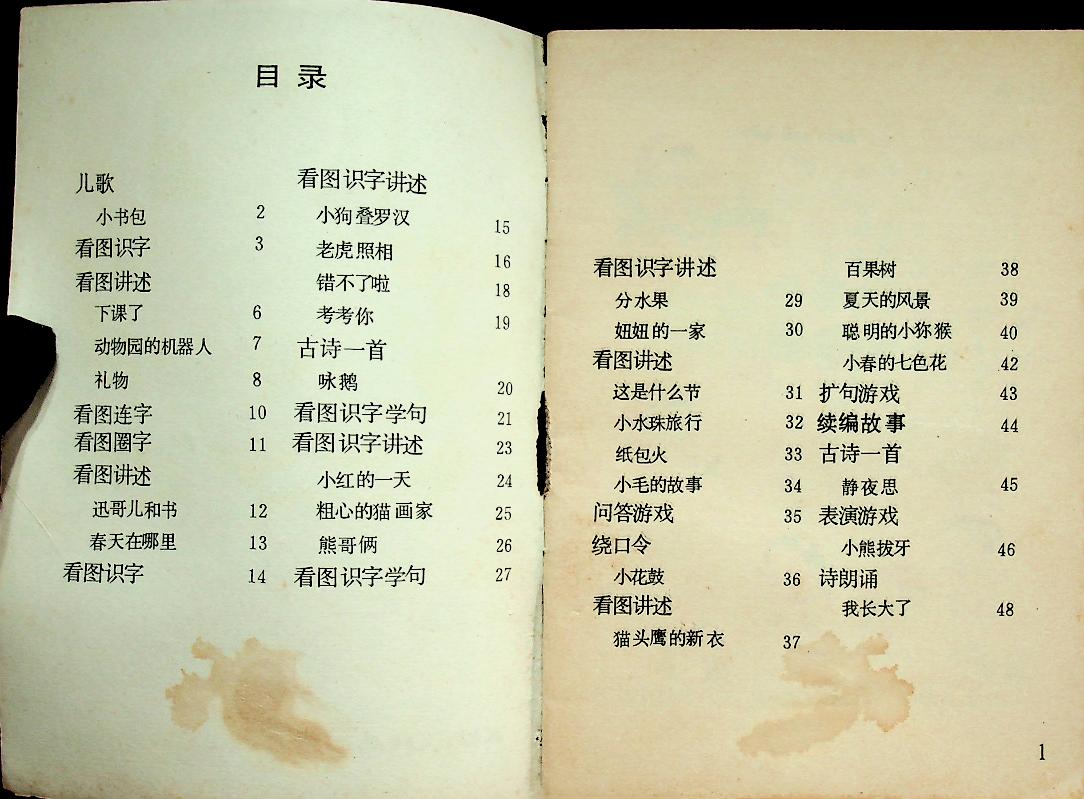 目录
儿歌
小书包 2
看图识字 3
看图讲述
下课了 6
动物园的机器人 7
礼物 8
看图连字 10
看图圈字 11
看图讲述
迅哥儿和书 12
春天在哪里 13
看图识字 14
看图识字讲述
小狗叠罗汉 15
老虎照相 16
错不了啦 18
考考你 19
古诗一首
咏鹅 20
看图识字学句 21
看图识字讲述 23
小红的一天 24
粗心的猫画家 25
熊哥俩 26
看图识字学句 27
看图识字讲述
分水果 29
妞妞的一家 30
看图讲述
这是什么节 31
小水珠旅行 32
纸包火 33
小毛的故事 34
问答游戏 35
绕口令
小花鼓 36
看图讲述
猫头鹰的新衣 37
百果树 38
夏天的风景 39
聪明的小狝猴 40
小春的七色花 42
扩句游戏 43
续编故事 44
古诗一首
静夜思 45
表演游戏
小熊拔牙 46
诗朗诵
我长大了 48
1